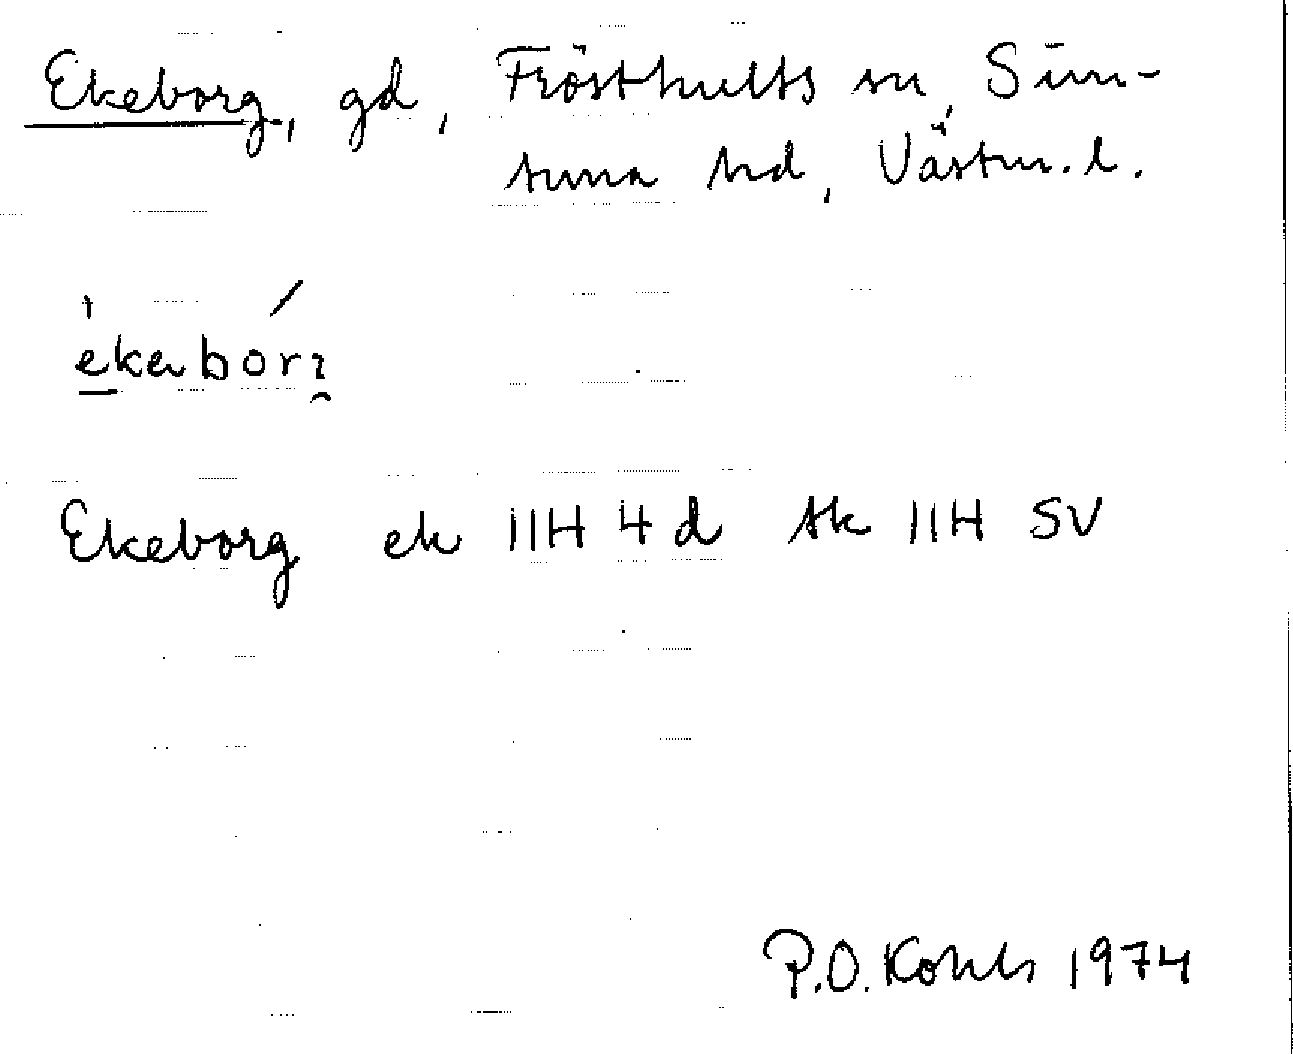 Ekeborg, gd, Frösthults sn, Sim-
tuna hd, Västm. l.
Ekeborg ek 11H 4d tk 11H SV
P.O. Kohls 1974